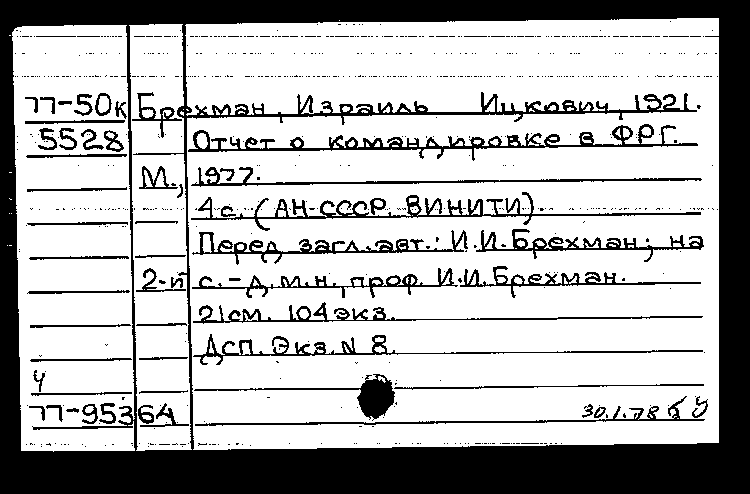 77-50к Брехман, Израиль Ицкович, 1921.
5528 Отчет о командировке в ФРГ.
М., 1977.
4 с. (АН СССР. ВИНИТИ).
Перед загл. авт.: И.И. Брехман; на
2-й с. - д.м.н., проф. И.И. Брехман.
21 см. 104 экз.
Дсп. Экз. N 8.
ч
77-95364 30.1.78